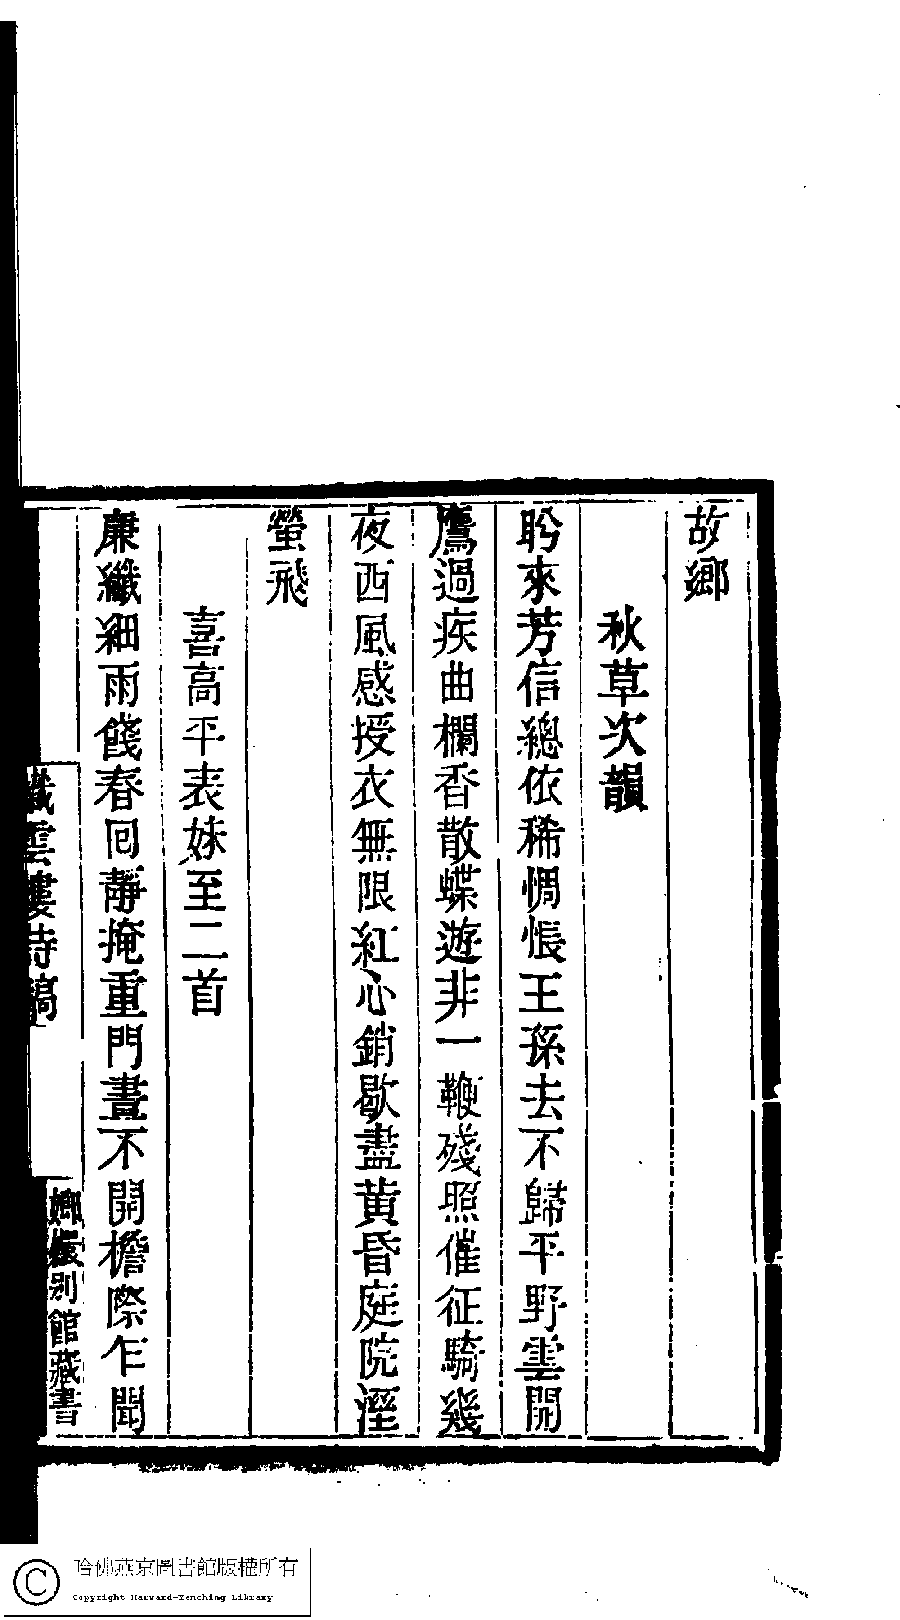 故鄉
秋草次韻
盻來芳信總依稀惆悵王孫去不歸平野雲開
鷹過疾曲欄香散蝶遊非一鞭殘照催征騎幾
夜西風感授衣無限紅心銷歇盡黃昏庭院溼
螢飛
喜高平表妹至二首
廉纖細雨餞春回靜掩重門晝不開檐際乍聞
織雲樓詩稿
嫏嬛別館藏書
哈佛燕京圖書館版權所有
Copyright Harvard-Yenching Library